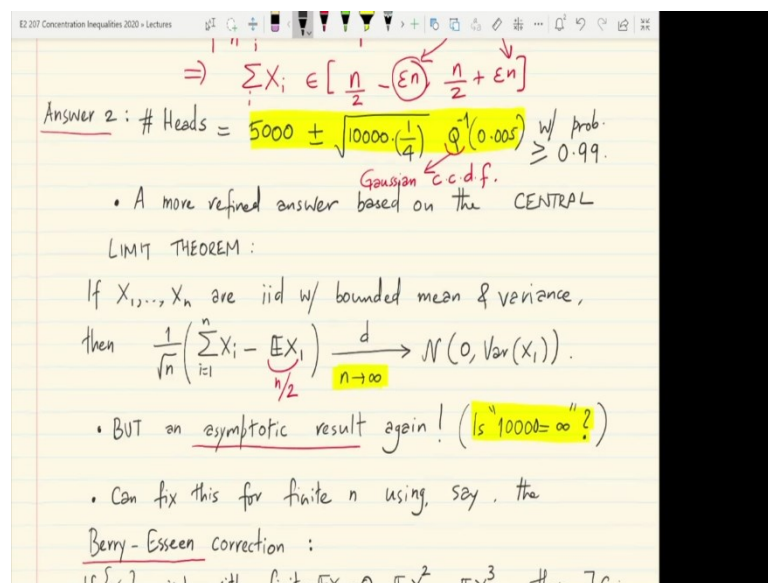 E2 207 Concentration Inequalities 2020 » Lectures
⇒ ∑ᵢ Xᵢ ∈ [ n/2 - εn, n/2 + εn ]
Answer 2 : # Heads = 5000 ± √(10000·(1/4)) Q⁻¹(0.005) w/ prob. ≥ 0.99.
Gaussian c.c.d.f.
• A more refined answer based on the CENTRAL
LIMIT THEOREM :
If X₁,..., Xₙ are iid w/ bounded mean & variance,
then 1/√n ( ∑ᵢ₌₁ⁿ Xᵢ - 𝔼X₁ ) →ᵈ N(0, Var(X₁)).
n/2 n→∞
• BUT an asymptotic result again! (Is "10000 = ∞"?)
• Can fix this for finite n using, say, the
Berry-Esseen correction :